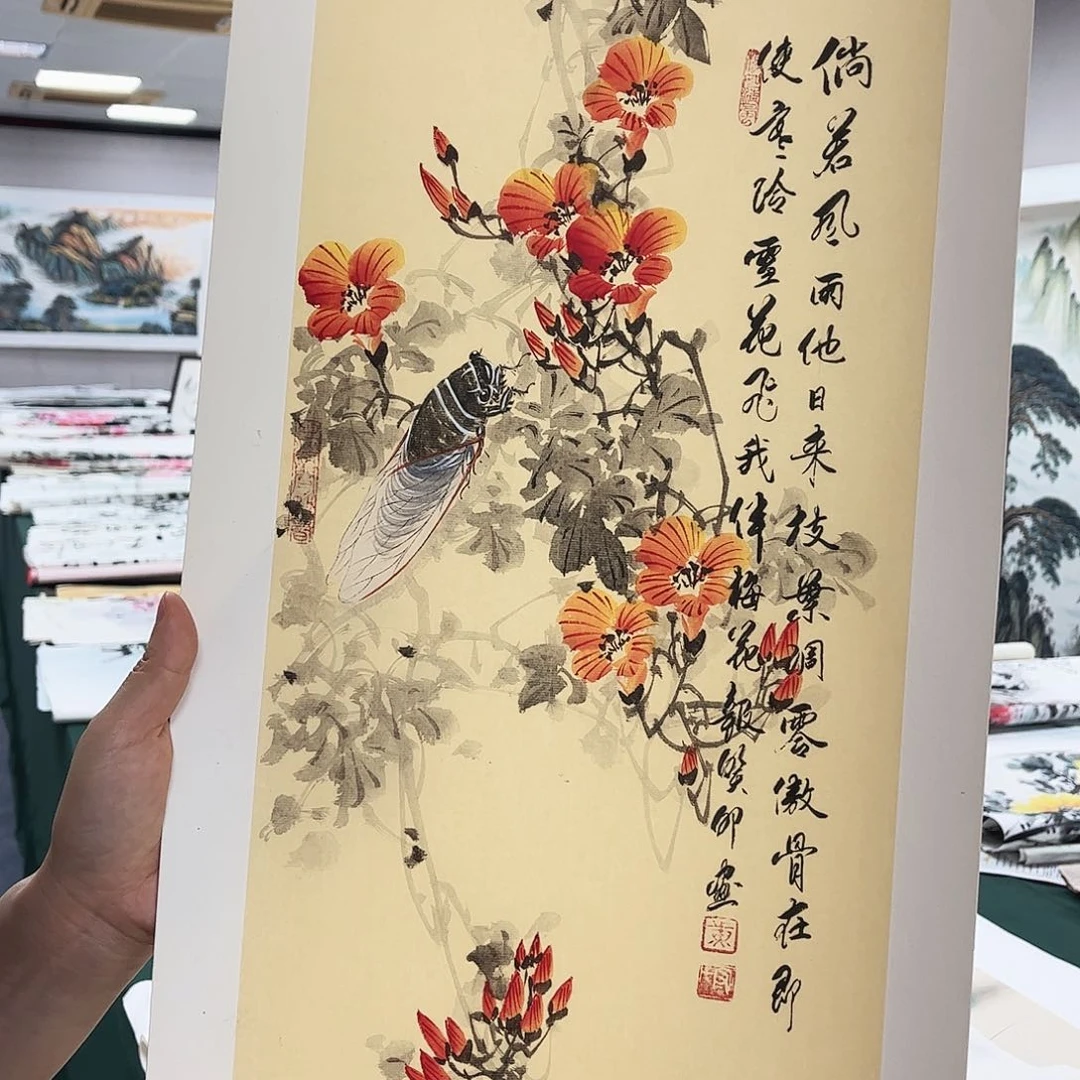 倘若风雨他日来枝叶凋零傲骨在即
使寒冷雪花飞我伴梅花报癸卯画